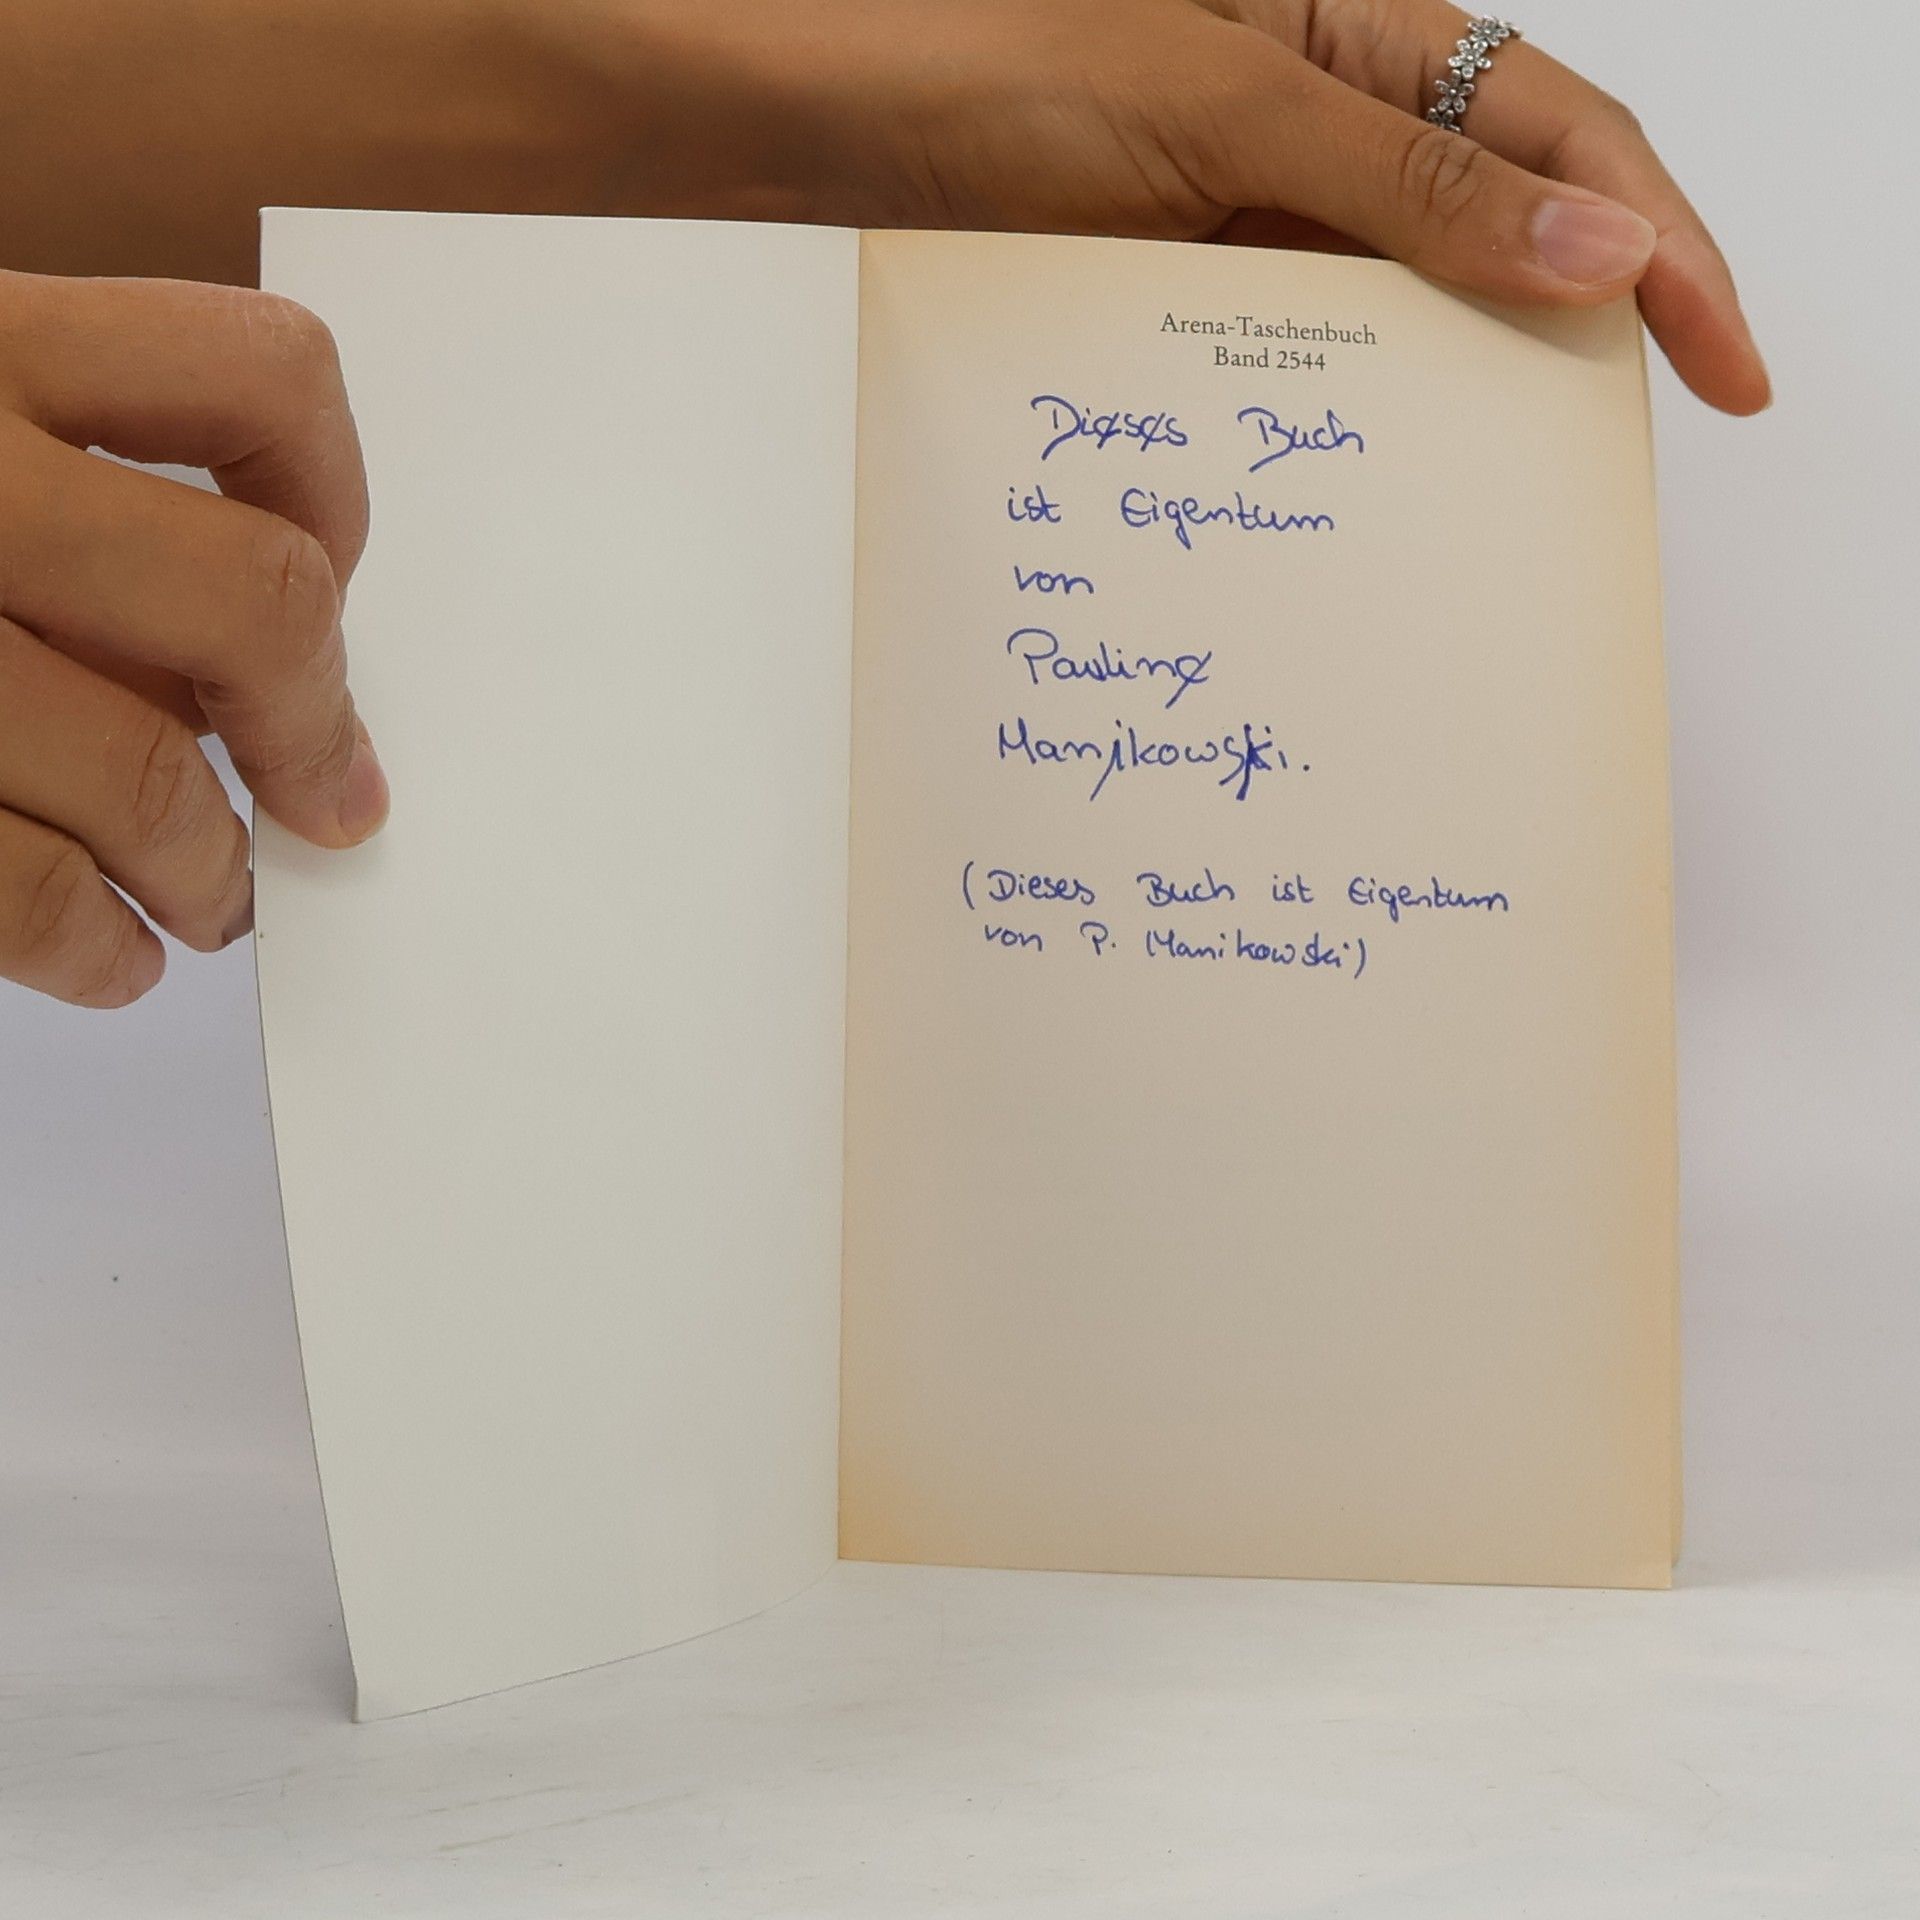 Arena-Taschenbuch
Band 2544
Dieses Buch
ist Eigentum
von
Pauline
Manikowski.
(Dieses Buch ist Eigentum
von P. Manikowski)